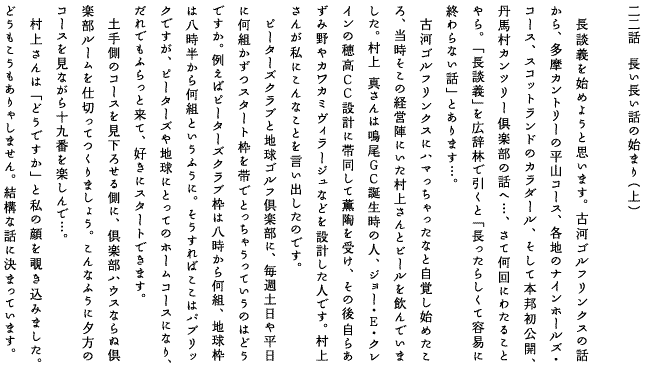 二二話　長い長い話の始まり（上）
長談義を始めようと思います。古河ゴルフリンクスの話
から、多摩カントリーの平山コース、各地のナインホールズ・
コース、スコットランドのカラダール、そして本邦初公開、
丹馬村カンツリー倶楽部の話へ…、さて何回にわたること
やら。「長談義」を広辞林で引くと「長ったらしくて容易に
終わらない話」とあります…。
古河ゴルフリンクスにハマっちゃったなと自覚し始めたこ
ろ、当時そこの経営陣にいた村上さんとビールを飲んでいま
した。村上 真さんは鳴尾GC誕生時の人、ジョー・E・クレ
インの穂高CC設計に帯同して薫陶を受け、その後自らあ
ずみ野やカワカミヴィラージュなどを設計した人です。村上
さんが私にこんなことを言い出したのです。
ピーターズクラブと地球ゴルフ倶楽部に、毎週土日や平日
に何組かずつスタート枠を帯でとっちゃうっていうのはどう
ですか。例えばピーターズクラブ枠は八時から何組、地球枠
は八時半から何組というふうに。そうすればここはパブリッ
クですが、ピーターズや地球にとってのホームコースになり、
だれでもふらっと来て、好きにスタートできます。
土手側のコースを見下ろせる側に、倶楽部ハウスならぬ倶
楽部ルームを仕切ってつくりましょう。こんなふうに夕方の
コースを見ながら十九番を楽しんで…。
村上さんは「どうですか」と私の顔を覗き込みました。
どうもこうもありゃしません。結構な話に決まっています。